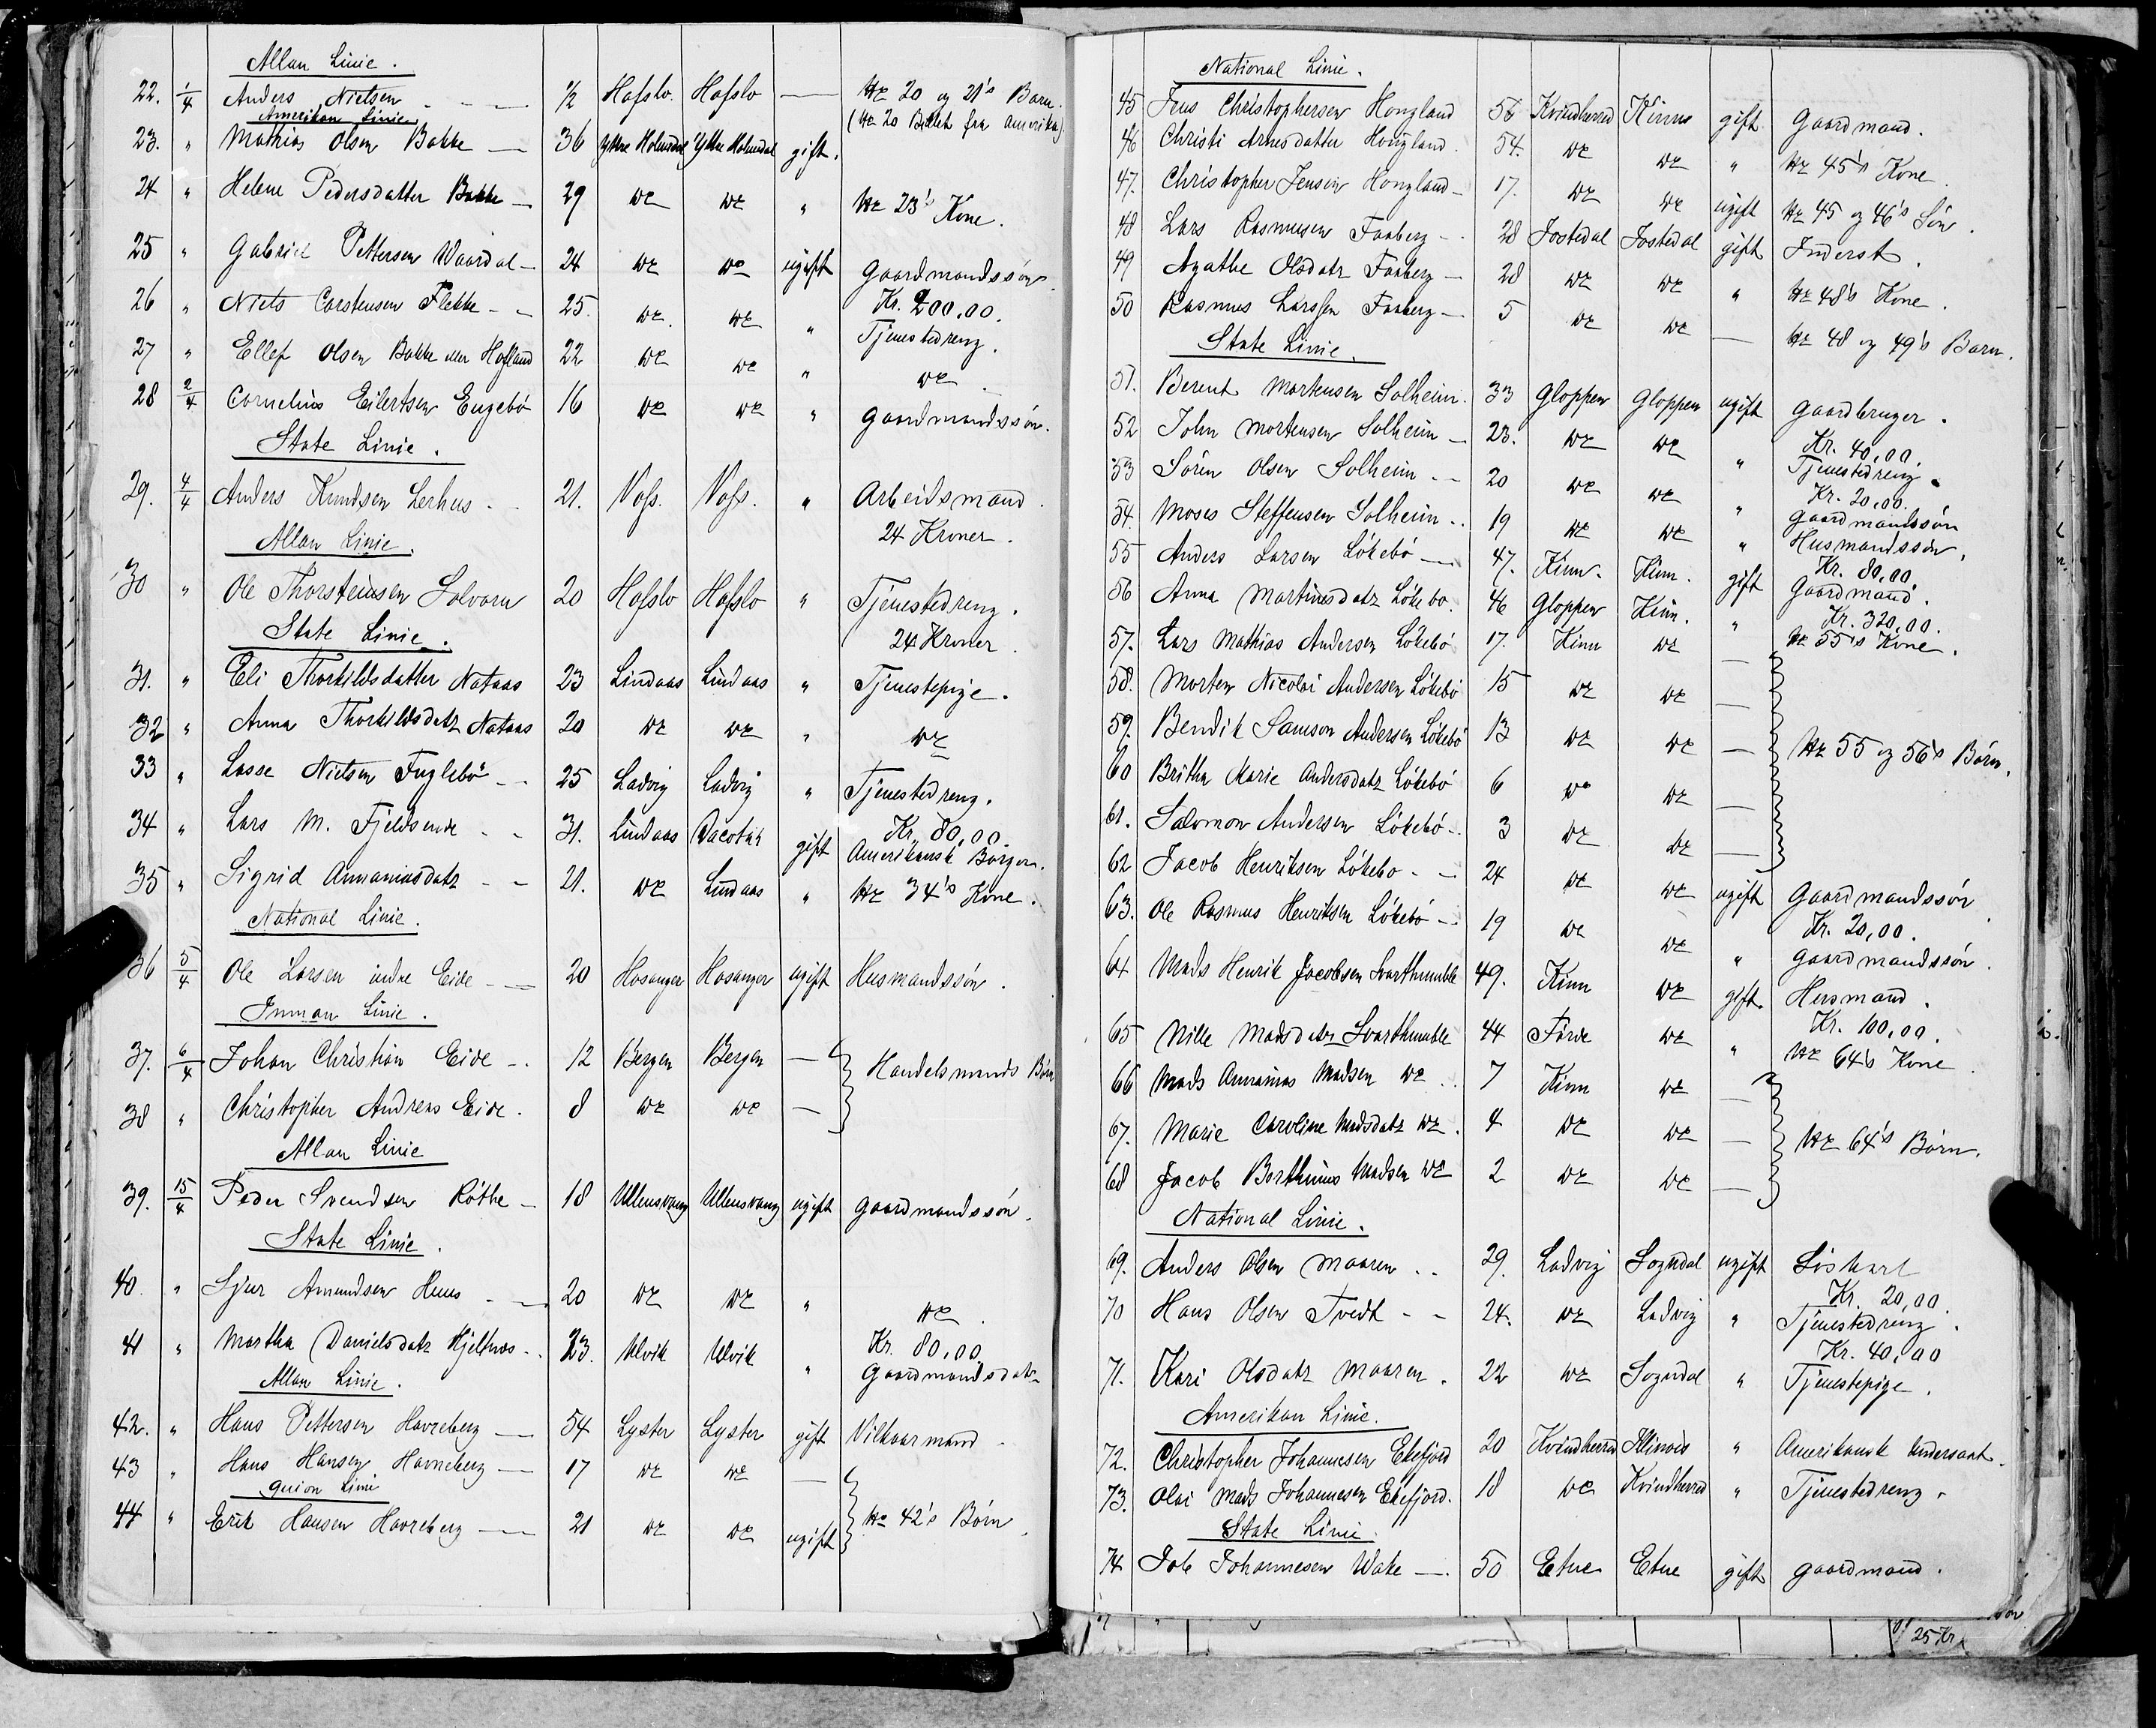 Allan Linie.
22. 1/4 Anders Nielsen — 1/2 Hafslo Hafslo — Nr 20 og 21's Barn.
(Nr 20 Billet fra Amerika)
Amerikan Linie
23. " Mathias Olsen Bakke — 36 Yttre Holmedal Yttre Holmedal gift.
24 " Helene Pedersdatter Bakke — 29 do do " Nr 23's Kone.
25 " Gabriel Pettersen Waardal — 24 do do ugift Gaardmandssön
Kr. 200,00.
26 " Niels Carstensen Flekke — 25. do. do " Tjenestedreng.
27 " Ellef Olsen Bakke eller Hofland 22 do do " do
28 2/4 Cornelius Eilertsen Engebö 16 do do " Gaardmandssön.
State Linie.
29. 4/4 Anders Knudsen Lerhus - 21. Voss. Voss. " Arbeidsmand.
24 Kroner.
Allan Linie.
30 " Ole Thorsteinsen Solvorn 20 Hafslo Hafslo " Tjenestedreng.
24 Kroner.
State Linie.
31. " Eli Thorkildsdatter Nataas 23 Lindaas Lindaas " Tjenestepige.
32 " Anna Thorkildsdatr Nataas 20 do do " do
33 " Lasse Nielsen Fuglebö - 25 Ladvig Ladvig " Tjenestedreng.
Kr. 80,00.
34 " Lars M. Fjeldsende - 31. Lindaas Dacotah gift Amerikansk Borger.
35 " Sigrid Annaniasdatr - 21. do Lindaas " Nr 34's Kone.
National Linie.
36 5/4 Ole Larsen indre Eide — 20 Hosanger Hosanger ugift Husmandssön.
Inman Linie.
37. 6/4 Johan Christian Eide - 12 Bergen Bergen — Handelsmands Börn
38 " Christopher Andreas Eide. 8 do do —
Allan Linie
39. 15/4 Peder Svendsen Röthe - 18 Ullensvang Ullensvang ugift Gaardmandssön.
State Linie.
40. " Sjur Amundsen Huus — 20 do do " do.
Kr. 80,00
41 " Martha Danielsdatr Hjeltnæs - 23. Ulvik Ulvik " Gaardmandsdatr
Allan Linie.
42. " Hans Pettersen Havreberg — 54 Lyster Lyster gift Vilkaarmand
43 " Hans Hansen Havreberg — 17 do do —
Guion Linie
44 " Erik Hansen Havreberg — 21 do do ugift Nr 42's Börn
National Linie.
45 Jens Christophersen Hougland 56 Kvindherred Kinn gift Gaardmand.
46 Christi Arnesdatter Hougland. 54. do do " Nr 45's Kone.
47. Christopher Jensen Hougland - 17. do do ugift Nr 45 og 46's Sön.
48 Lars Rasmusen Faaberg - 28 Jostedal Jostedal gift Inderst.
49 Agathe Olsdatr Faaberg - 28 do do " Nr 48's Kone.
50 Rasmus Larssen Faaberg - 5 do do — Nr 48 og 49's Barn.
State Linie.
51. Berent Mortensen Solheim. 33 Gloppen Gloppen ugift Gaardbruger.
Kr. 40,00.
52 John Mortensen Solheim - 23. do do " Tjenestedreng.
Kr. 20,00.
53 Sören Olsen Solheim - - 20 do do " Gaardmandssön
54. Moses Steffensen Solheim - 19 do do " Husmandssön.
Kr. 80,00.
55 Anders Larsen Lökebö — 47. Kinn. Kinn. gift Gaardmand.
Kr. 320,00.
56 Anna Martinusdatr Lökebö. 46 Gloppen Kinn. " Nr 55's Kone.
57. Lars Mathias Andersen Lökebö 17. Kinn do —
58. Morten Nicolai Andersen Lökebö 15 do do —
59. Bendik Samson Andersen Lökebö 13 do do — Nr 55 og 56's Börn.
60 Britha Marie Andersdatr Lökebö 6 do do —
61. Salomon Andersen Lökebö - 3 do do —
62 Jacob Henriksen Lökebö - 24 do do ugift Gaardmandssön
Kr. 20,00.
63. Ole Rasmus Henriksen Lökebö - 19 do do " Gaardmandssön.
64 Mads Henrik Jacobsen Svarthumble 49. Kinn do gift Husmand.
Kr. 100,00.
65 Nille Madsdatr Svarthumble 44 Förde do " Nr 64's Kone
66 Mads Annanias Madsen do 7 Kinn do —
67. Marie Caroline Madsdatr do. 4 do do — Nr 64's Börn.
68 Jacob Berthinius Madsen do 2 do do —
National Linie.
69. Anders Olsen Maaren - - 29. Ladvig Sogndal ugift Löskarl
Kr. 20,00.
70 Hans Olsen Tvedt - - 24. do Ladvig " Tjenestedreng.
Kr. 40,00
71. Kari Olsdatr Maaren. 22 do Sogndal " Tjenestepige.
Amerikan Linie.
72. Christopher Johannesen Ekefjord 20 Kvindherred Illinois " Amerikansk Undersaat.
73. Olai Mads Johannesen Ekefjord. 18 do Kvindherred " Tjenestedreng.
State Linie.
74 Job Johannesen Wake — 50 Etne Etne gift Gaardmand.
25 Kr